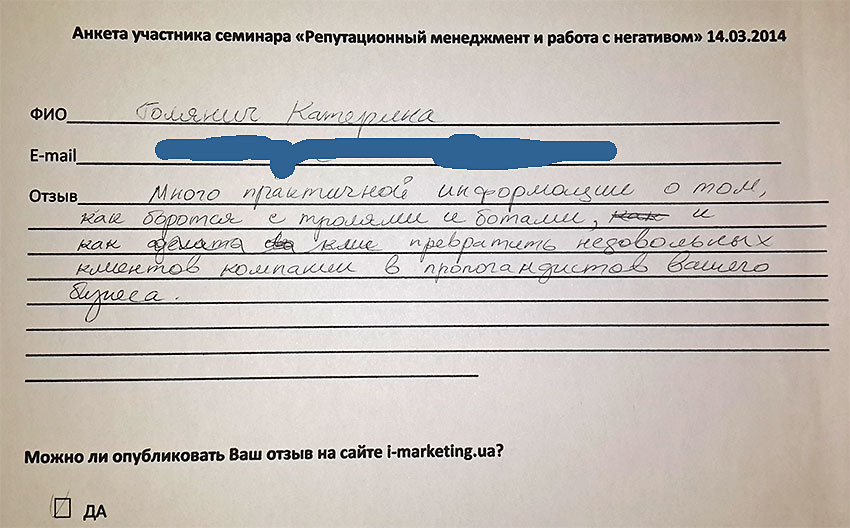 Анкета участника семинара «Репутационный менеджмент и работа с негативом» 14.03.2014
ФИО Гомянич Катерина
E-mail
Отзыв Много практичной информации о том,
как боротся с тролями и ботами, как и
как превратить недовольных
клиентов компании в пропогандистов вашего
бизнеса.
Можно ли опубликовать Ваш отзыв на сайте i-marketing.ua?
ДА